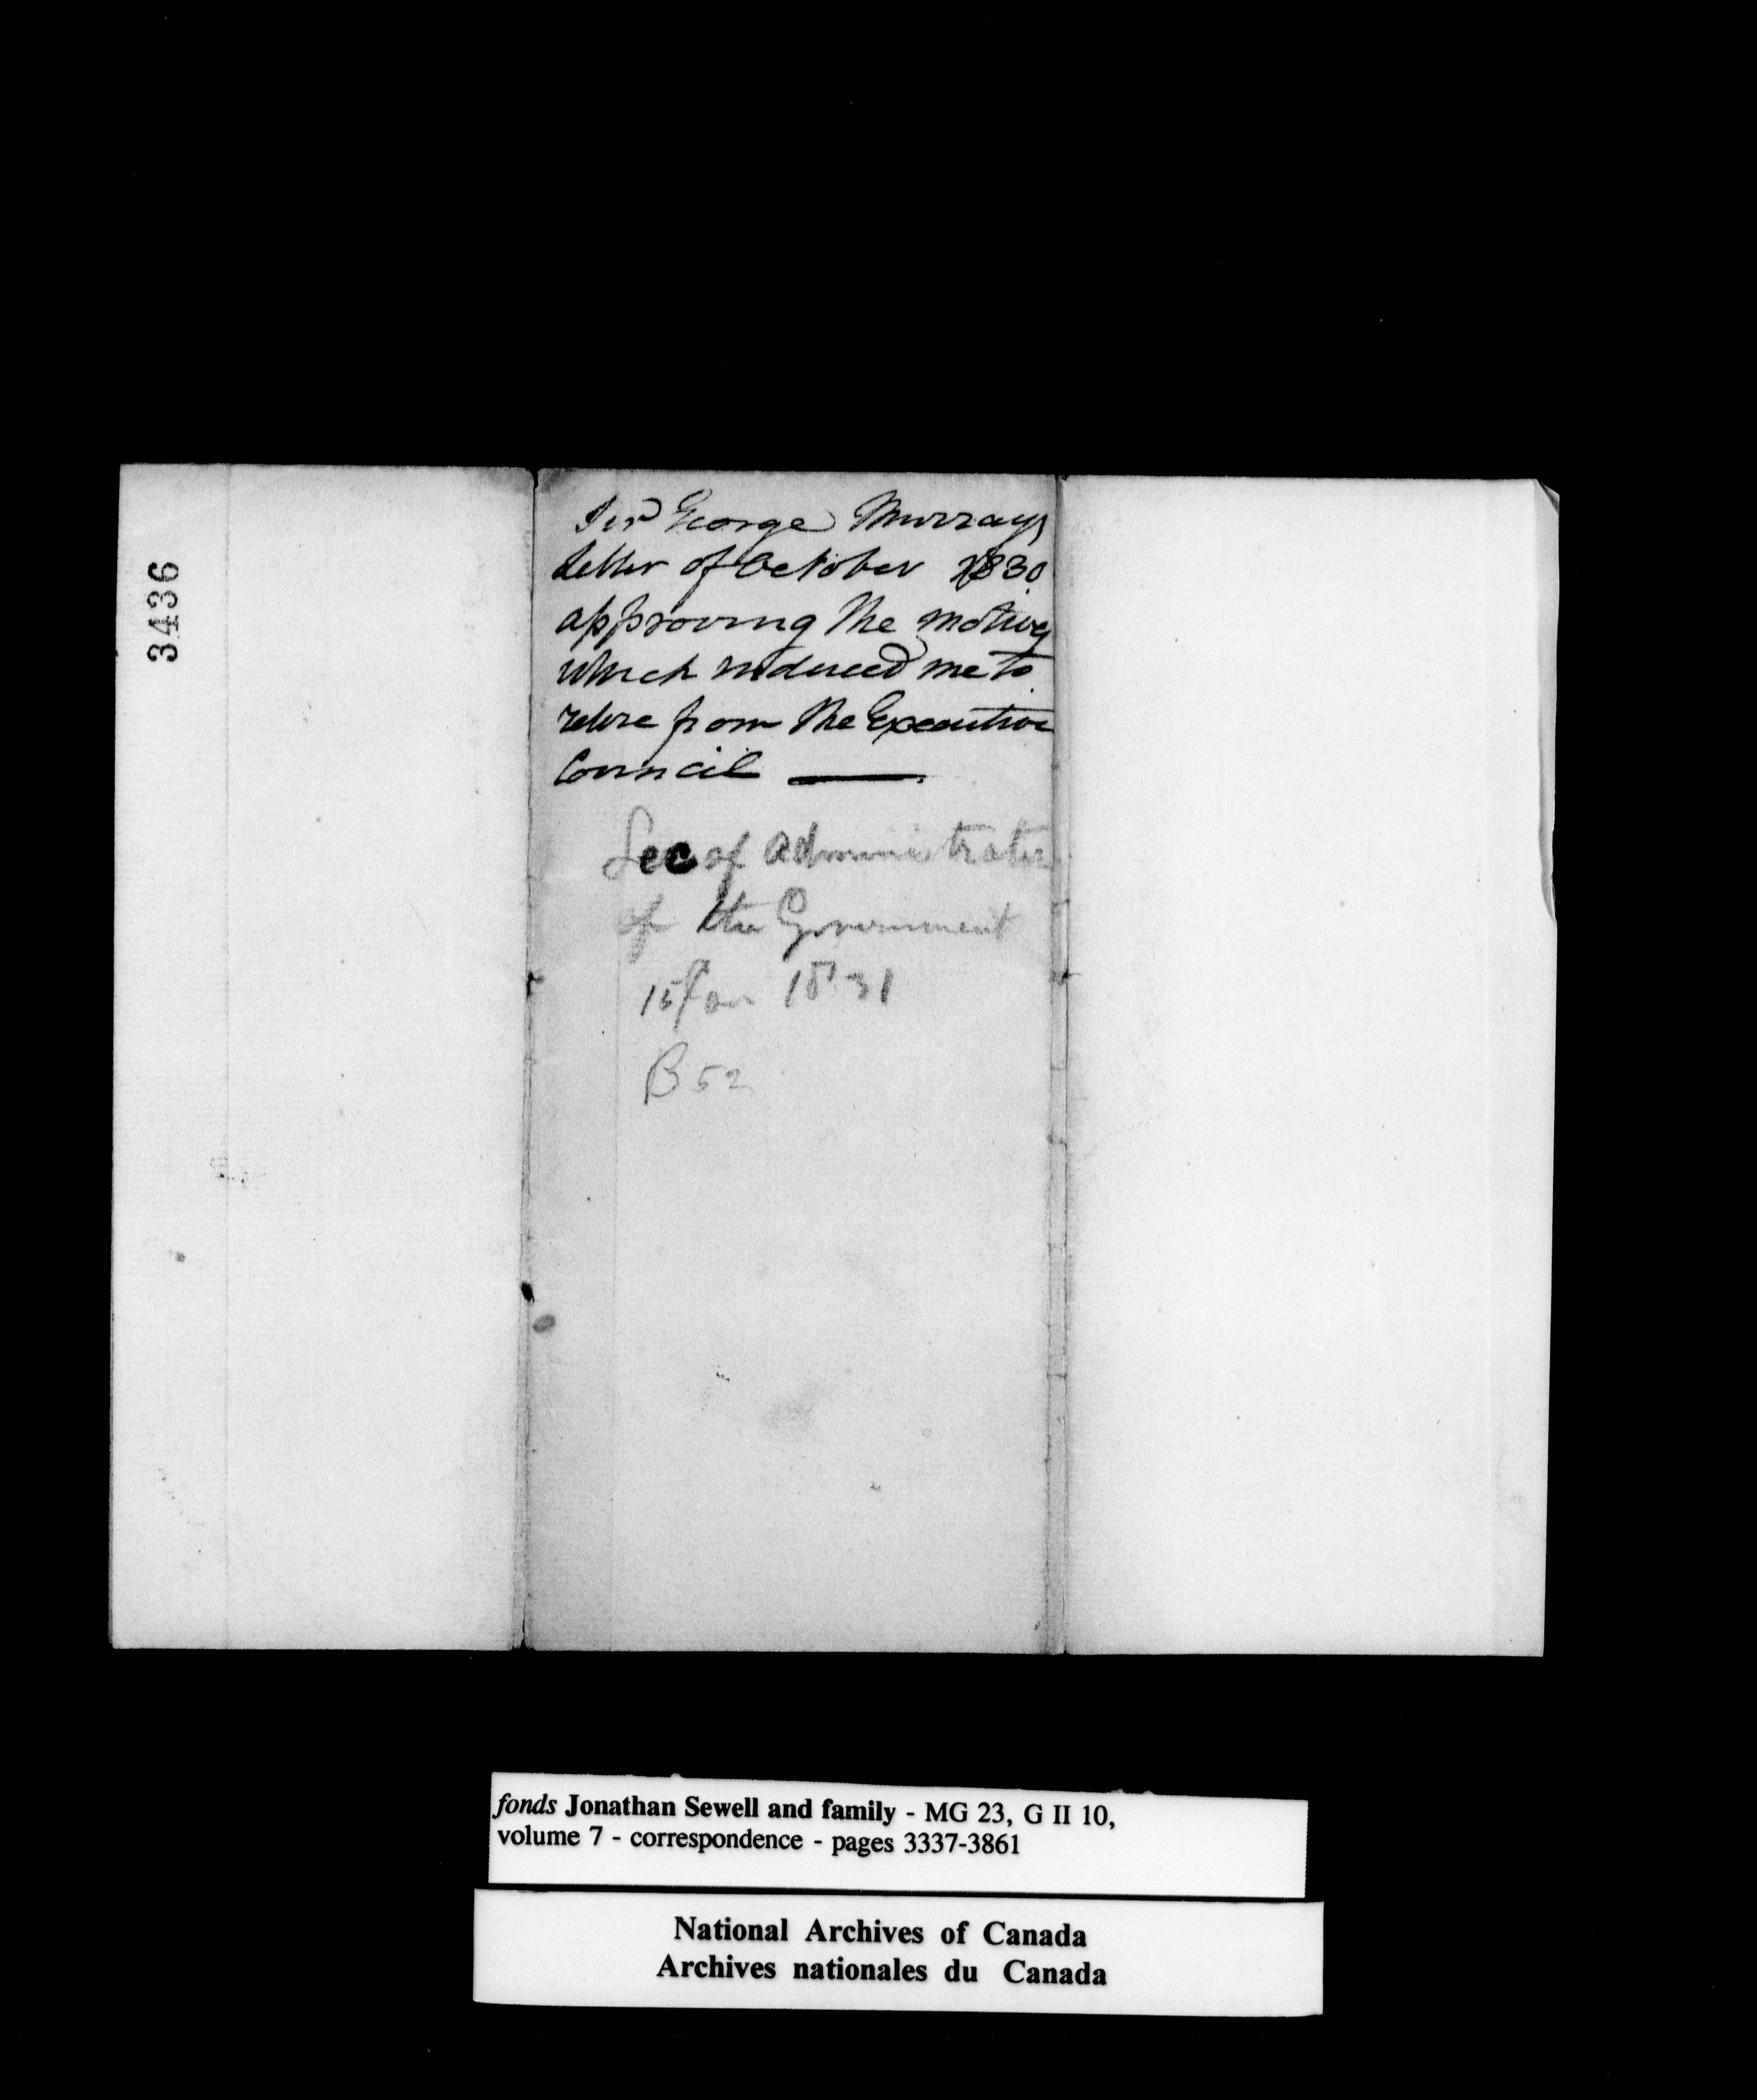 3436
Sir George Murrays
Letter of October 1830
approving the motives
which induced me to
retire from the Executive
Council ———
Sec of Administrator
of the Government
15 Jan 1831
B 52
fonds Jonathan Sewell and family - MG 23, G II 10,
volume 7 - correspondence - pages 3337-3861
National Archives of Canada
Archives nationales du Canada